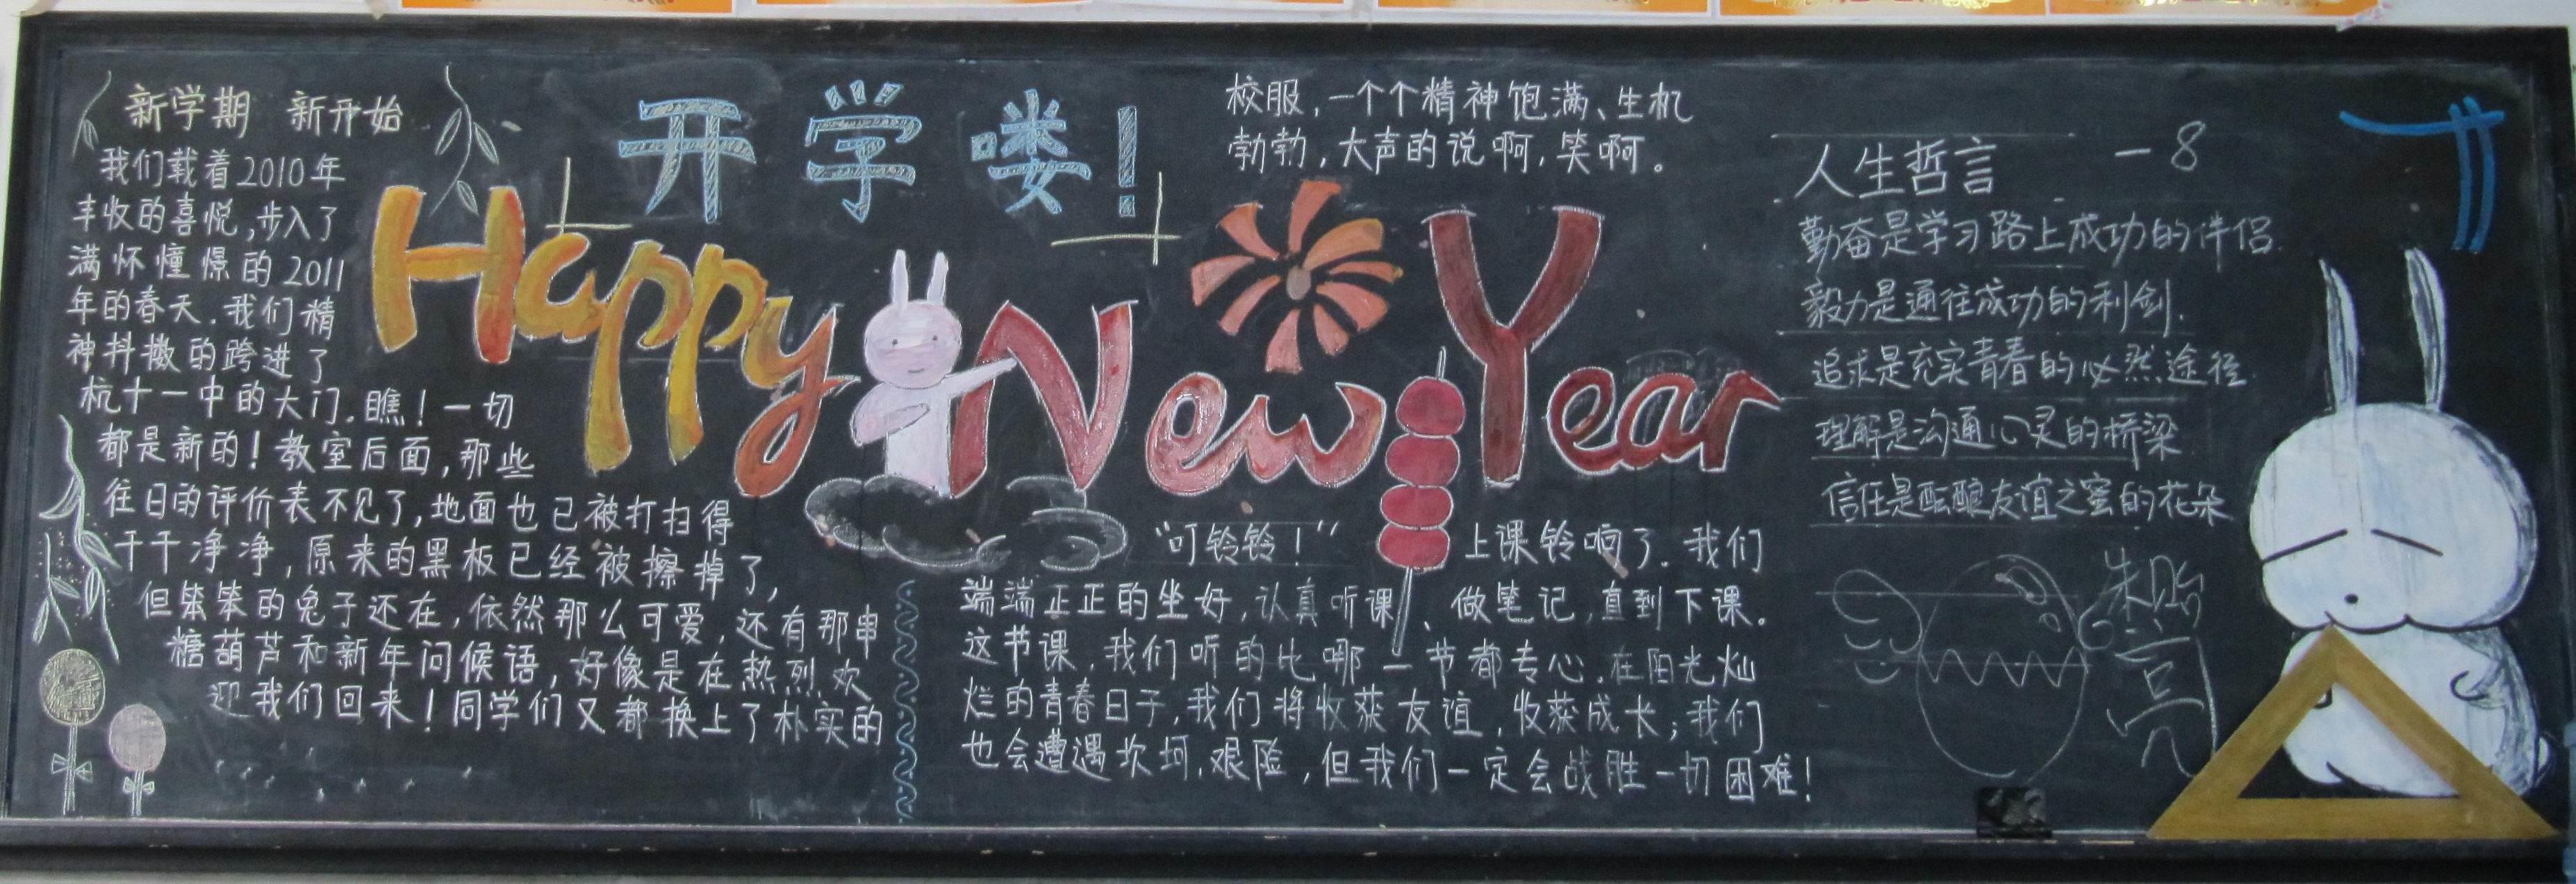 开学喽!
Happy New Year
新学期 新开始
我们载着2010年
丰收的喜悦,步入了
满怀憧憬的2011
年的春天.我们精
神抖擞的跨进了
杭十一中的大门.瞧!一切
都是新的!教室后面,那些
往日的评价表不见了,地面也已被打扫得
干干净净,原来的黑板已经被擦掉了,
但笨笨的兔子还在,依然那么可爱,还有那串
糖葫芦和新年问候语,好像是在热烈欢
迎我们回来!同学们又都换上了朴实的
校服,一个个精神饱满、生机
勃勃,大声的说啊,笑啊。
“叮铃铃!” 上课铃响了.我们
端端正正的坐好,认真听课、做笔记,直到下课。
这节课,我们听的比哪一节都专心.在阳光灿
烂的青春日子,我们将收获友谊,收获成长;我们
也会遭遇坎坷,艰险,但我们一定会战胜一切困难!
人生哲言 —8
勤奋是学习路上成功的伴侣.
毅力是通往成功的利剑.
追求是充实青春的必然途径
理解是沟通心灵的桥梁
信任是酝酿友谊之蜜的花朵